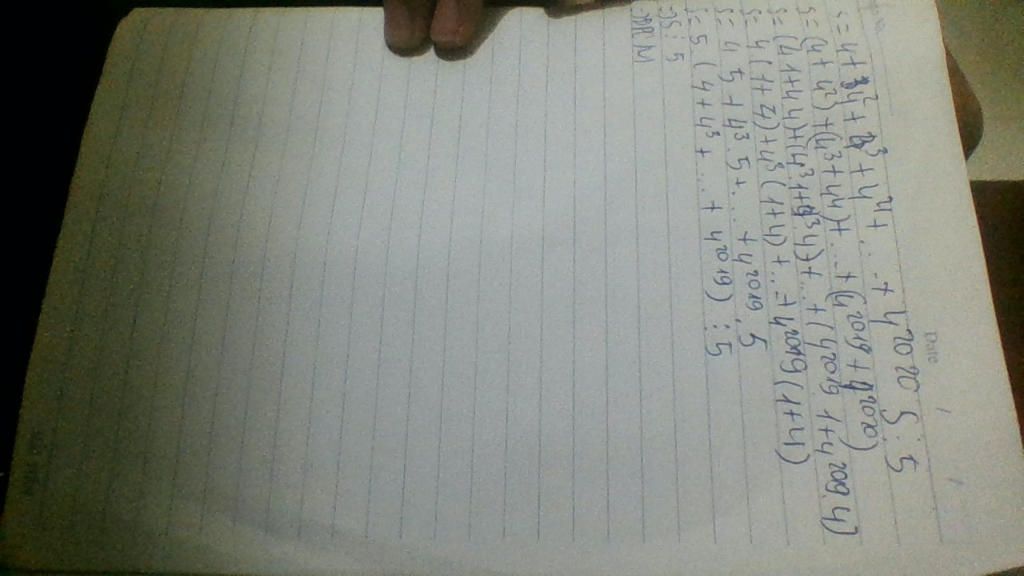 Date / /
S = 4 + 4² + 4³ + 4⁴ + ... + 4²⁰²⁰ S ⋮ 5
S = (4 + 4²) + (4³ + 4⁴) + ... + (4²⁰¹⁹ + 4²⁰²⁰)
S = (4.1+4.4)+(4³.1+4³.4) + ... + (4²⁰¹⁹.1+4²⁰¹⁹.4)
S = 4(1+4)+4³(1+4) + ... + 4²⁰¹⁹(1+4)
S = 4.5 + 4³.5 + ... + 4²⁰¹⁹.5
S = 5 (4+4³+ .... + 4²⁰¹⁹) ⋮ 5
=) S ⋮ 5